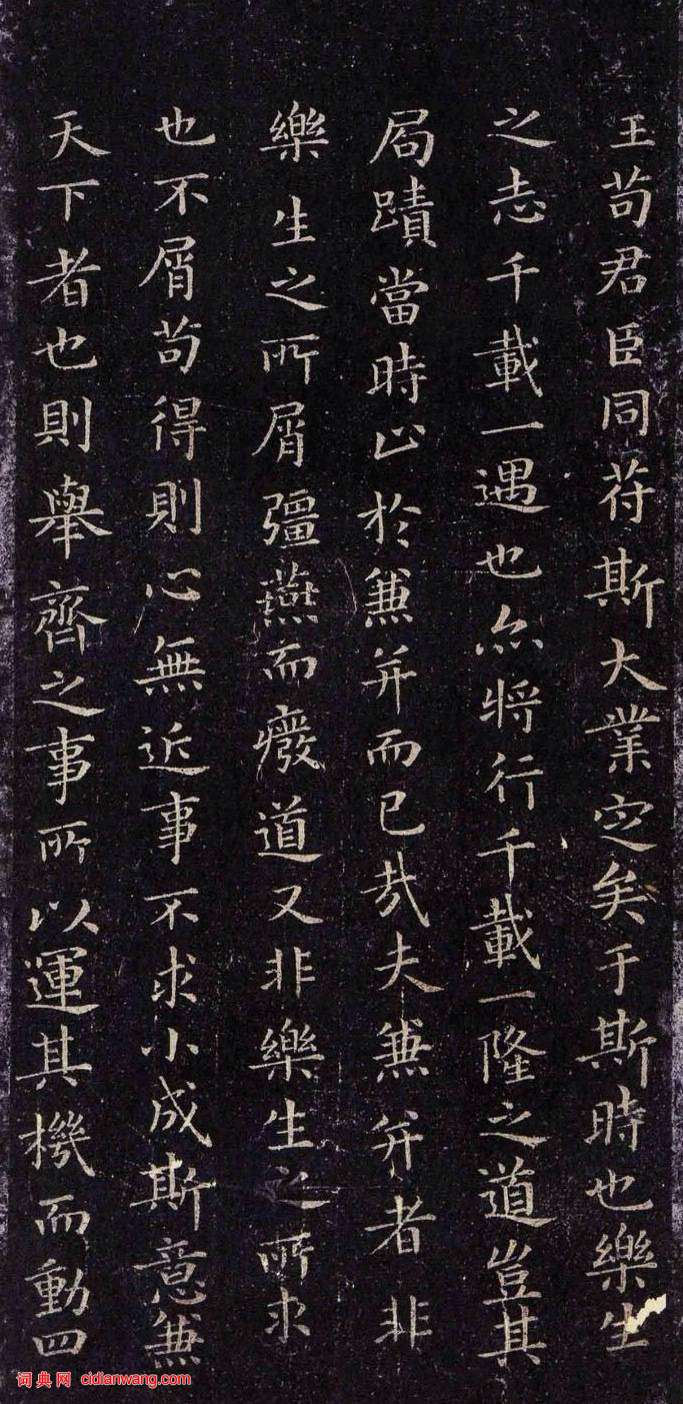 王苟君臣同苻斯大業定矣于斯時也樂生
之志千載一遇也亦將行千載一隆之道豈其
局蹟當時止於兼并而已哉夫兼并者非
樂生之所屑彊燕而癈道又非樂生之所求
也不屑苟得則心無近事不求小成斯意兼
天下者也則舉齊之事所以運其機而動四
词典网 cidianwang.com